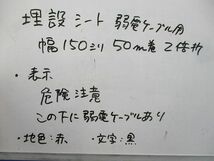 埋設シート 弱電ケーブル用
幅150ミリ 50m巻 2倍折
・表示
危険注意
この下に弱電ケーブルあり
・地色:赤 ・文字:黒